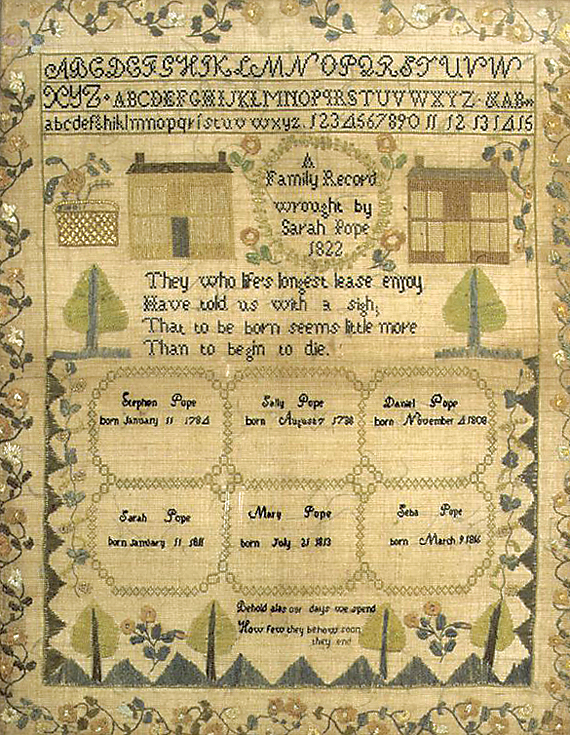 ABCDEFGHIKLMNOPQRSTUVW
XYZ · ABCDEFGHIJKLMNOPQRSTUVWXYZ · &AB
abcdefghiklmnopqristuvwxyz. 1234567890 11 12 13 14 15
A
Family Record
wrought by
Sarah Pope
1822
They who life's longest lease enjoy
Have told us with a sigh;
That to be born seems little more
Than to begin to die.
Stephen Pope
born January 11 1784
Sally Pope
born August 7 1788
Daniel Pope
born November 4 1808
Sarah Pope
born January 11 1811
Mary Pope
born July 21 1813
Seba Pope
born March 9 1816
Behold alas our days we spend
How few they be how soon
they end